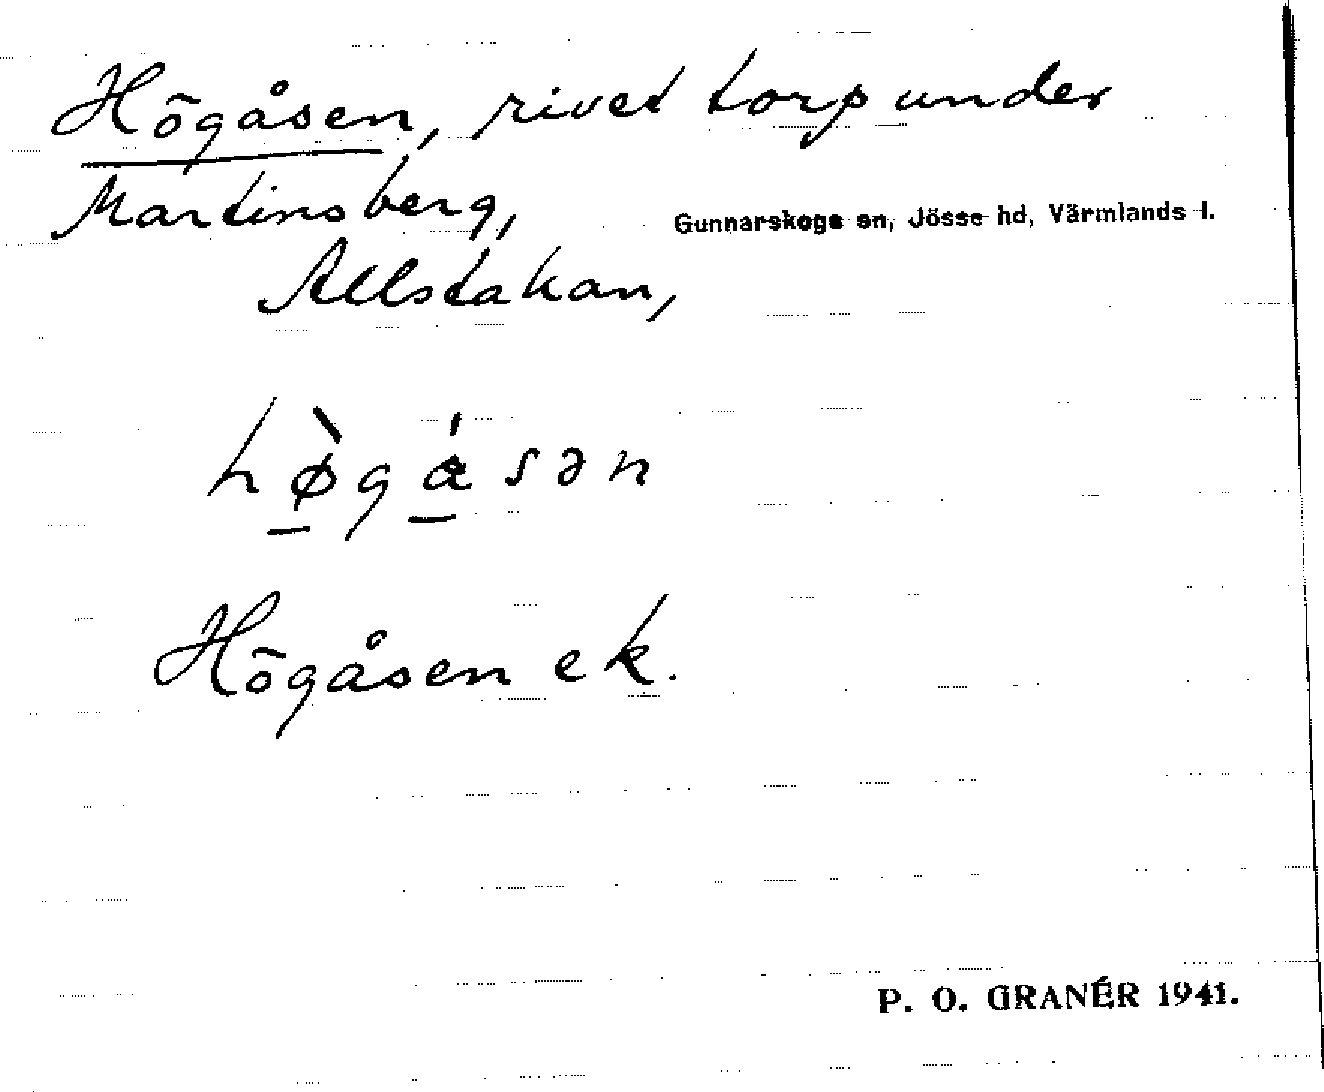 Högåsen, rivet torp under
Martinsberg,
Gunnarskogs sn, Jösse hd, Värmlands l.
Allstakan,
hø̀gåsən
Högåsen ek.
P. O. GRANÉR 1941.